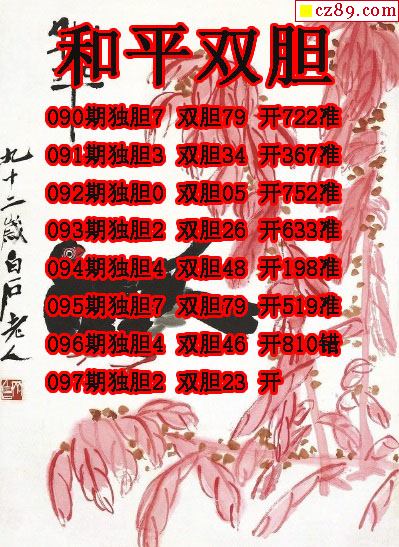 cz89.com
和平双胆
090期独胆7 双胆79 开722准
091期独胆3 双胆34 开367准
092期独胆0 双胆05 开752准
093期独胆2 双胆26 开633准
094期独胆4 双胆48 开198准
095期独胆7 双胆79 开519准
096期独胆4 双胆46 开810错
097期独胆2 双胆23 开
九十二岁白石老人